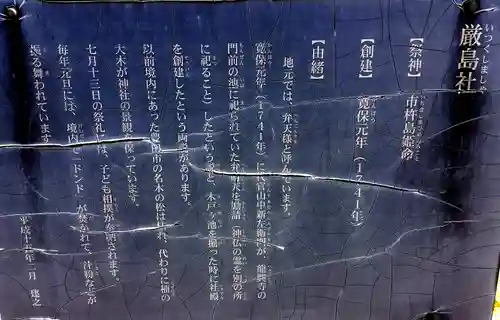 いつくしましゃ
厳島社
【祭神】 市杵島姫命
【創建】 寛保元年（1741年）
【由緒】
地元では、弁天様と呼んでいます。
寛保元年（1741年）に 代官山中新左衛門が、龍興寺の
門前の池に祀られていた弁財天を勧請（神仏の霊を別の所
に祀ること）したという説と、木戸ヶ池を掘った時に社殿
を創建したという があります。
以前境内にあった 市の名木の松は枯れ、代わりに楠の
大木が神社の景観を保っています。
七月十三日の祭礼には、子ども相撲が奉納されます。
毎年元旦には、境内でドンドが焚かれて、汁粉などが
振る舞われています。
平成十五年一月 建之